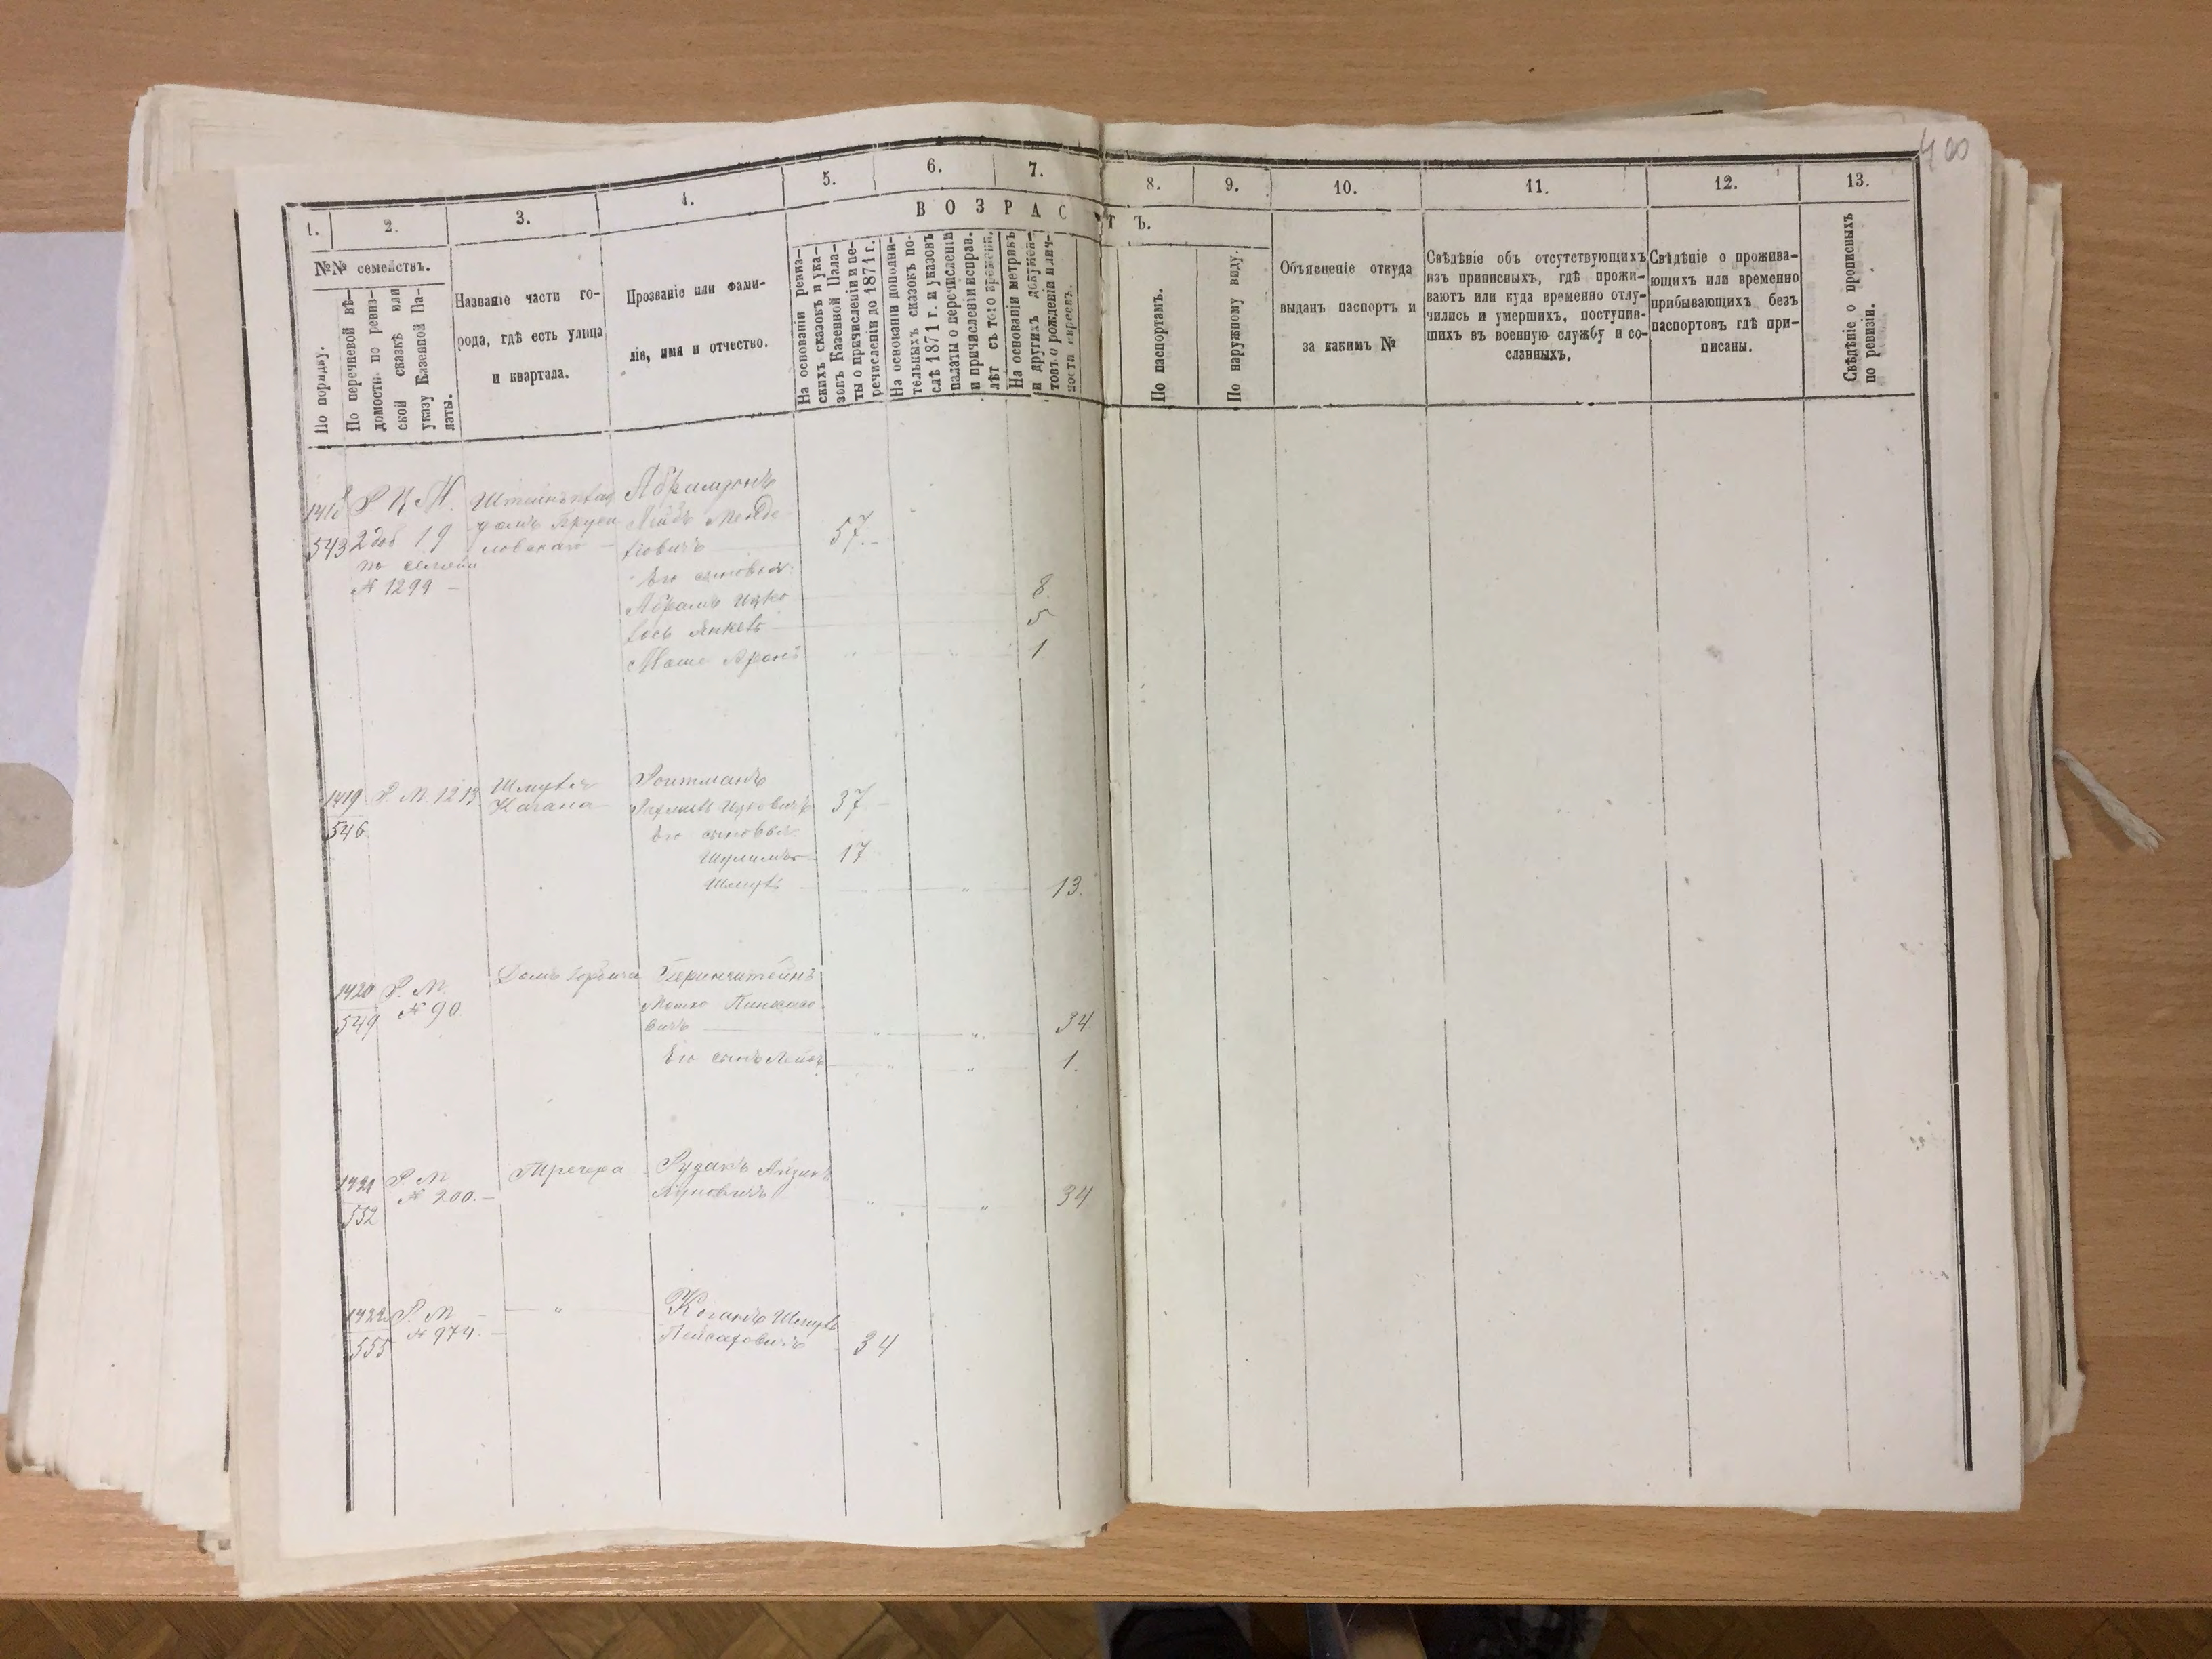 400
1. 2. 3. 4. 5. 6. 7. 8. 9. 10. 11. 12. 13.
ВОЗРАСТЪ.
№№ семействъ.
По порядку.
По перечневой вѣ-
домости по ревиз-
ской сказкѣ или
указу Казенной Па-
латы.
Названіе части го-
рода, гдѣ есть улица
и квартала.
Прозваніе или фами-
лія, имя и отчество.
На основаніи ревиз-
скихъ сказокъ и ука-
зовъ Казенной Пала-
ты о причисленіи и пе-
речисленіи до 1871 г.
На основаніи дополни-
тельныхъ сказокъ по-
слѣ 1871 г. и указовъ
палаты о перечисленіи
и причисленіи исправ.
лѣт съ того времени.
На основаніи метрикъ
и другихъ докумен-
товъ о рожденіи и лич-
ности евреевъ.
По паспортамъ.
По наружному виду.
Объясненіе откуда
выданъ паспортъ и
за какимъ №
Свѣдѣніе объ отсутствующихъ
изъ приписныхъ, гдѣ прожи-
ваютъ или куда временно отлу-
чились и умершихъ, поступив-
шихъ въ военную службу и со-
сланныхъ.
Свѣдѣніе о прожива-
ющихъ или временно
прибывающихъ безъ
паспортовъ гдѣ при-
писаны.
Свѣдѣніе о прописныхъ
по ревизіи.
1418
543
2 доб 19
№ 1299
домъ
Абрамзонъ
57.
Его сыновья:
Абрамъ Ицко 8.
Іось Янкель 5
Моше Аронъ 1
1419 Р. М. 1213 Шмуля
546 Кагана
Ройтманъ
Ицковичъ 37
Его сыновья:
Шулимъ 17
Шмуль 13.
1420 Р. М.
549 № 90
Домъ
Беринштейнъ
Мошко Пинхасо-
вичъ 34.
Его сынъ 1.
1421 Р М
552 № 200.
Рудакъ Айзикъ
34
1422 Р. М
555 № 974.
Коганъ Шмуль
Пейсаховичъ 34